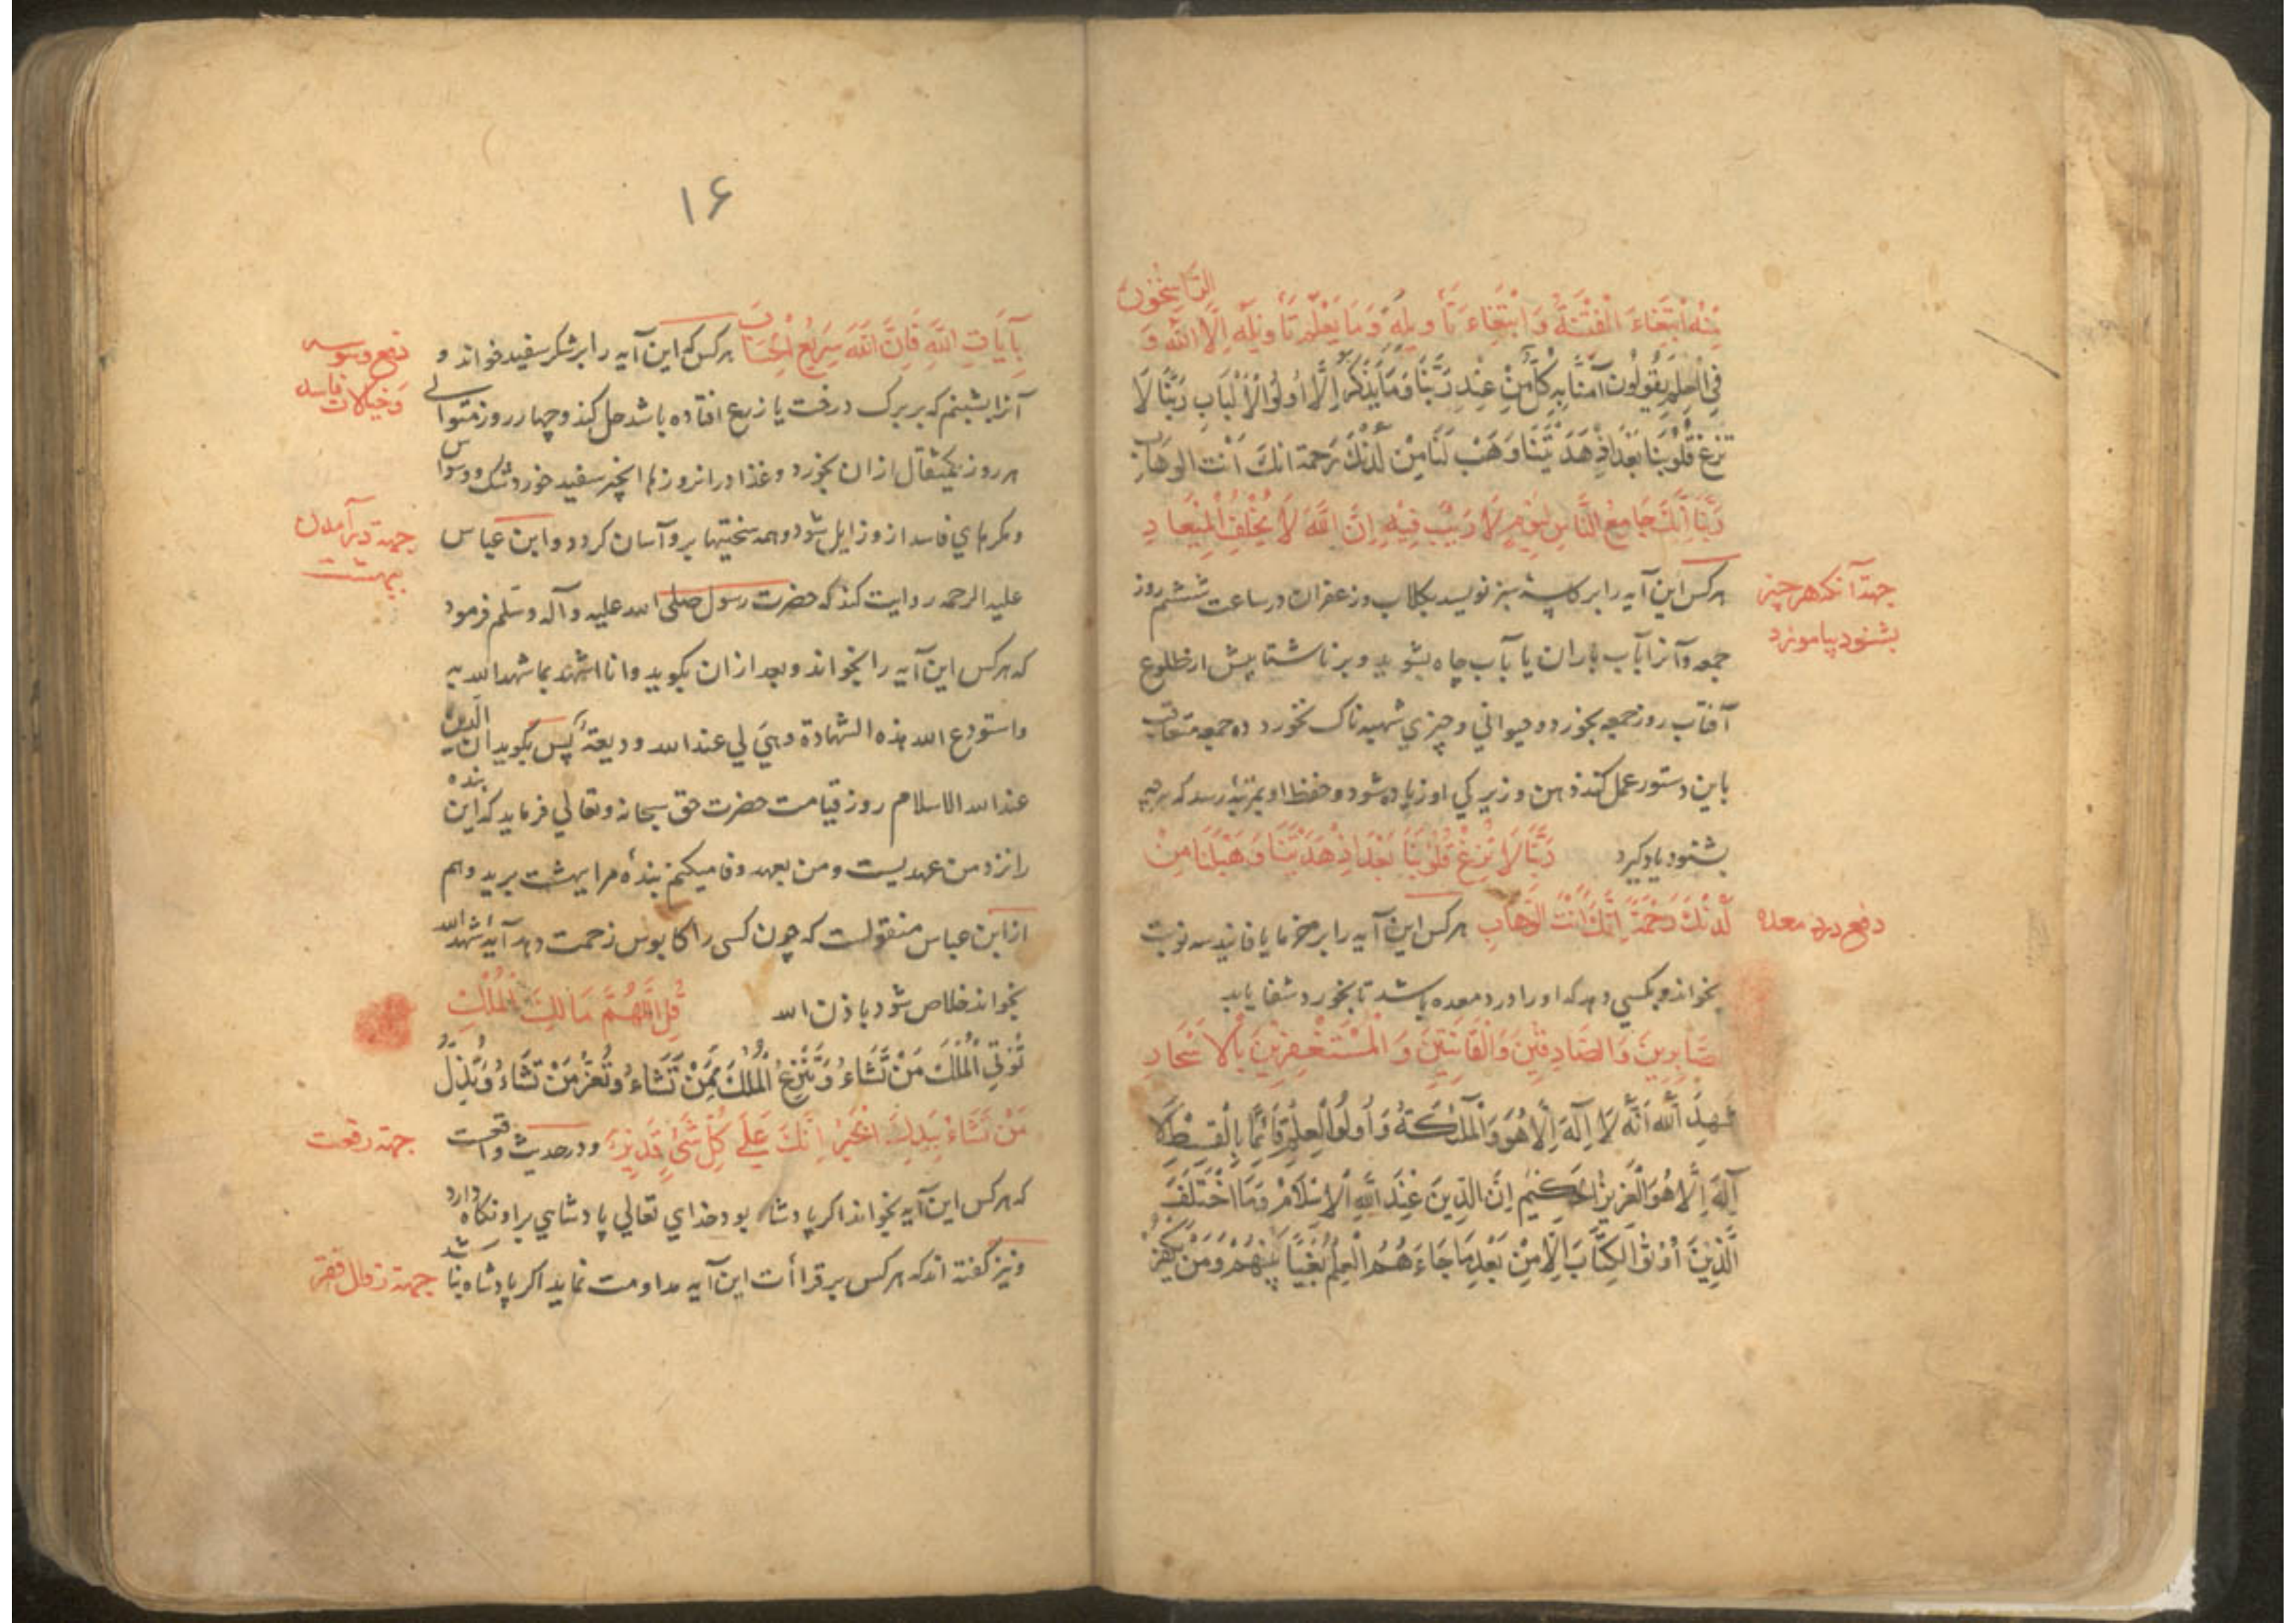 مِنْهُ ابْتِغَاءَ الْفِتْنَةِ وَابْتِغَاءَ تَأْوِيلِهِ وَمَا يَعْلَمُ تَأْوِيلَهُ إِلَّا اللَّهُ وَ الرَّاسِخُونَ
فِي الْعِلْمِ يَقُولُونَ آمَنَّا بِهِ كُلٌّ مِنْ عِنْدِ رَبِّنَا وَمَا يَذَّكَّرُ إِلَّا أُولُو الْأَلْبَابِ رَبَّنَا لَا
تُزِغْ قُلُوبَنَا بَعْدَ إِذْ هَدَيْتَنَا وَهَبْ لَنَا مِنْ لَدُنْكَ رَحْمَةً انكَ اَنْتَ الوهاب
رَبَّنَا إِنَّكَ جَامِعُ النَّاسِ لِيَوْمٍ لَا رَيْبَ فِيهِ إِنَّ اللَّهَ لَا يُخْلِفُ الْمِيعَادِ
هر کس این آیه را بر کاسهٔ سبز نویسد بکلاب و زعفران در ساعت ششم روز
جهة آنکه هر چیز
بشنود بیاموزد
جمعه و آنرا بآب باران یا بآب چاه بشوید و بر ناشتا پیش از طلوع
آفتاب روز جمعه بخورد و حیوانی و چیزی شبهه ناک نخورد ده جمعه متعاقب
باین دستور عمل کند ذهن و زیرکی او زیاده شود و حفظ او بمرتبهٔ رسد که هرچه
بشنود یاد کیرد رَبَّنَا لَا تُزِغْ قُلُوبَنَا بَعْدَ إِذْ هَدَيْتَنَا وَهَبْ لَنَا مِنْ
لَدُنْكَ رَحْمَةً إِنَّكَ أَنْتَ الْوَهَّابِ هر کس این آیه را بر خرما یا فانید سه نوبت
دفع درد معده
بخواند و بکسی دهد که او را درد معده باشد تا بخورد شفا یابد
صَّابِرِينَ وَالصَّادِقِينَ وَالْقَانِتِينَ وَ الْمُسْتَغْفِرِينَ بِالْأَسْحَارِ
شَهِدَ اللَّهُ أَنَّهُ لَا إِلَهَ إِلَّا هُوَ وَالْمَلَائِكَةُ وَأُولُو الْعِلْمِ قَائِمًا بِالْقِسْطِ لَا
إِلَهَ إِلَّا هُوَ الْعَزِيزُ الْحَكِيمُ إِنَّ الدِّينَ عِنْدَ اللَّهِ الْإِسْلَامُ وَمَا اخْتَلَفَ
الَّذِينَ أُوتُوا الْكِتَابَ إِلَّا مِنْ بَعْدِ مَا جَاءَهُمُ الْعِلْمُ بَغْيًا بَيْنَهُمْ وَمَنْ يَكْفُرْ
۱۶
بِآيَاتِ اللَّهِ فَإِنَّ اللَّهَ سَرِيعُ الْحِسَابِ هر کس که این آیه را بر شکر سفید خواند و
دفع وسوسه
و خیالات فاسده
آنرا بشبنم که بر برک درخت یا زرع افتاده باشد حل کند و چهار روز متوالی
هر روز یکمثقال ازان بخورد و غذا دران روزها انجیر سفید خورد شک و وسواس
و فکرهای فاسد ازو زایل شود و همه سختیها برو آسان کردد و ابن عباس
جهة درآمدن
بهشت
علیه الرحمه روایت کند که حضرت رسول صلی الله علیه و آله و سلم فرمود
که هر کس این آیه را بخواند و بعد ازان بکوید وانا اشهد بما شهد الله به
واستودع الله هذه الشهادة وهي لي عند الله وديعة پس بکوید ان الدین
عند الله الاسلام روز قیامت حضرت حق سبحانه و تعالی فرماید که این بنده
را نزد من عهدیست و من بعهد وفا میکنم بندهٔ مرا بهشت برید و هم
از ابن عباس منقولست که چون کسی را کابوس زحمت دهد آیهٔ شهد الله
بخواند خلاص شود باذن الله قُلِ اللَّهُمَّ مَالِكَ الْمُلْكِ
تُؤْتِي الْمُلْكَ مَنْ تَشَاءُ وَتَنْزِعُ الْمُلْكَ مِمَّنْ تَشَاءُ وَتُعِزُّ مَنْ تَشَاءُ وَتُذِلُّ
مَنْ تَشَاءُ بِيَدِكَ الْخَيْرُ إِنَّكَ عَلَى كُلِّ شَيْءٍ قَدِيرٌ و در حدیث واقعست
جهة رفعت
که هر کس این آیه بخواند اکر پادشاه بود خدای تعالی پادشاهی بر او نکاه دارد
و نیز کفته اند که هر کس بر قراأت این آیه مداومت نماید اکر پادشاه نباشد
جهة زوال فقر